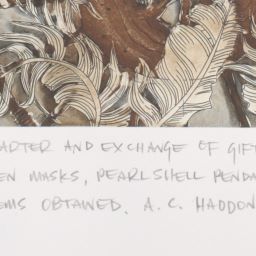 ARTER AND EXCHANGE OF GIFT
EN MASKS, PEARLSHELL PENDA
EMS OBTAINED. A. C. HADDON